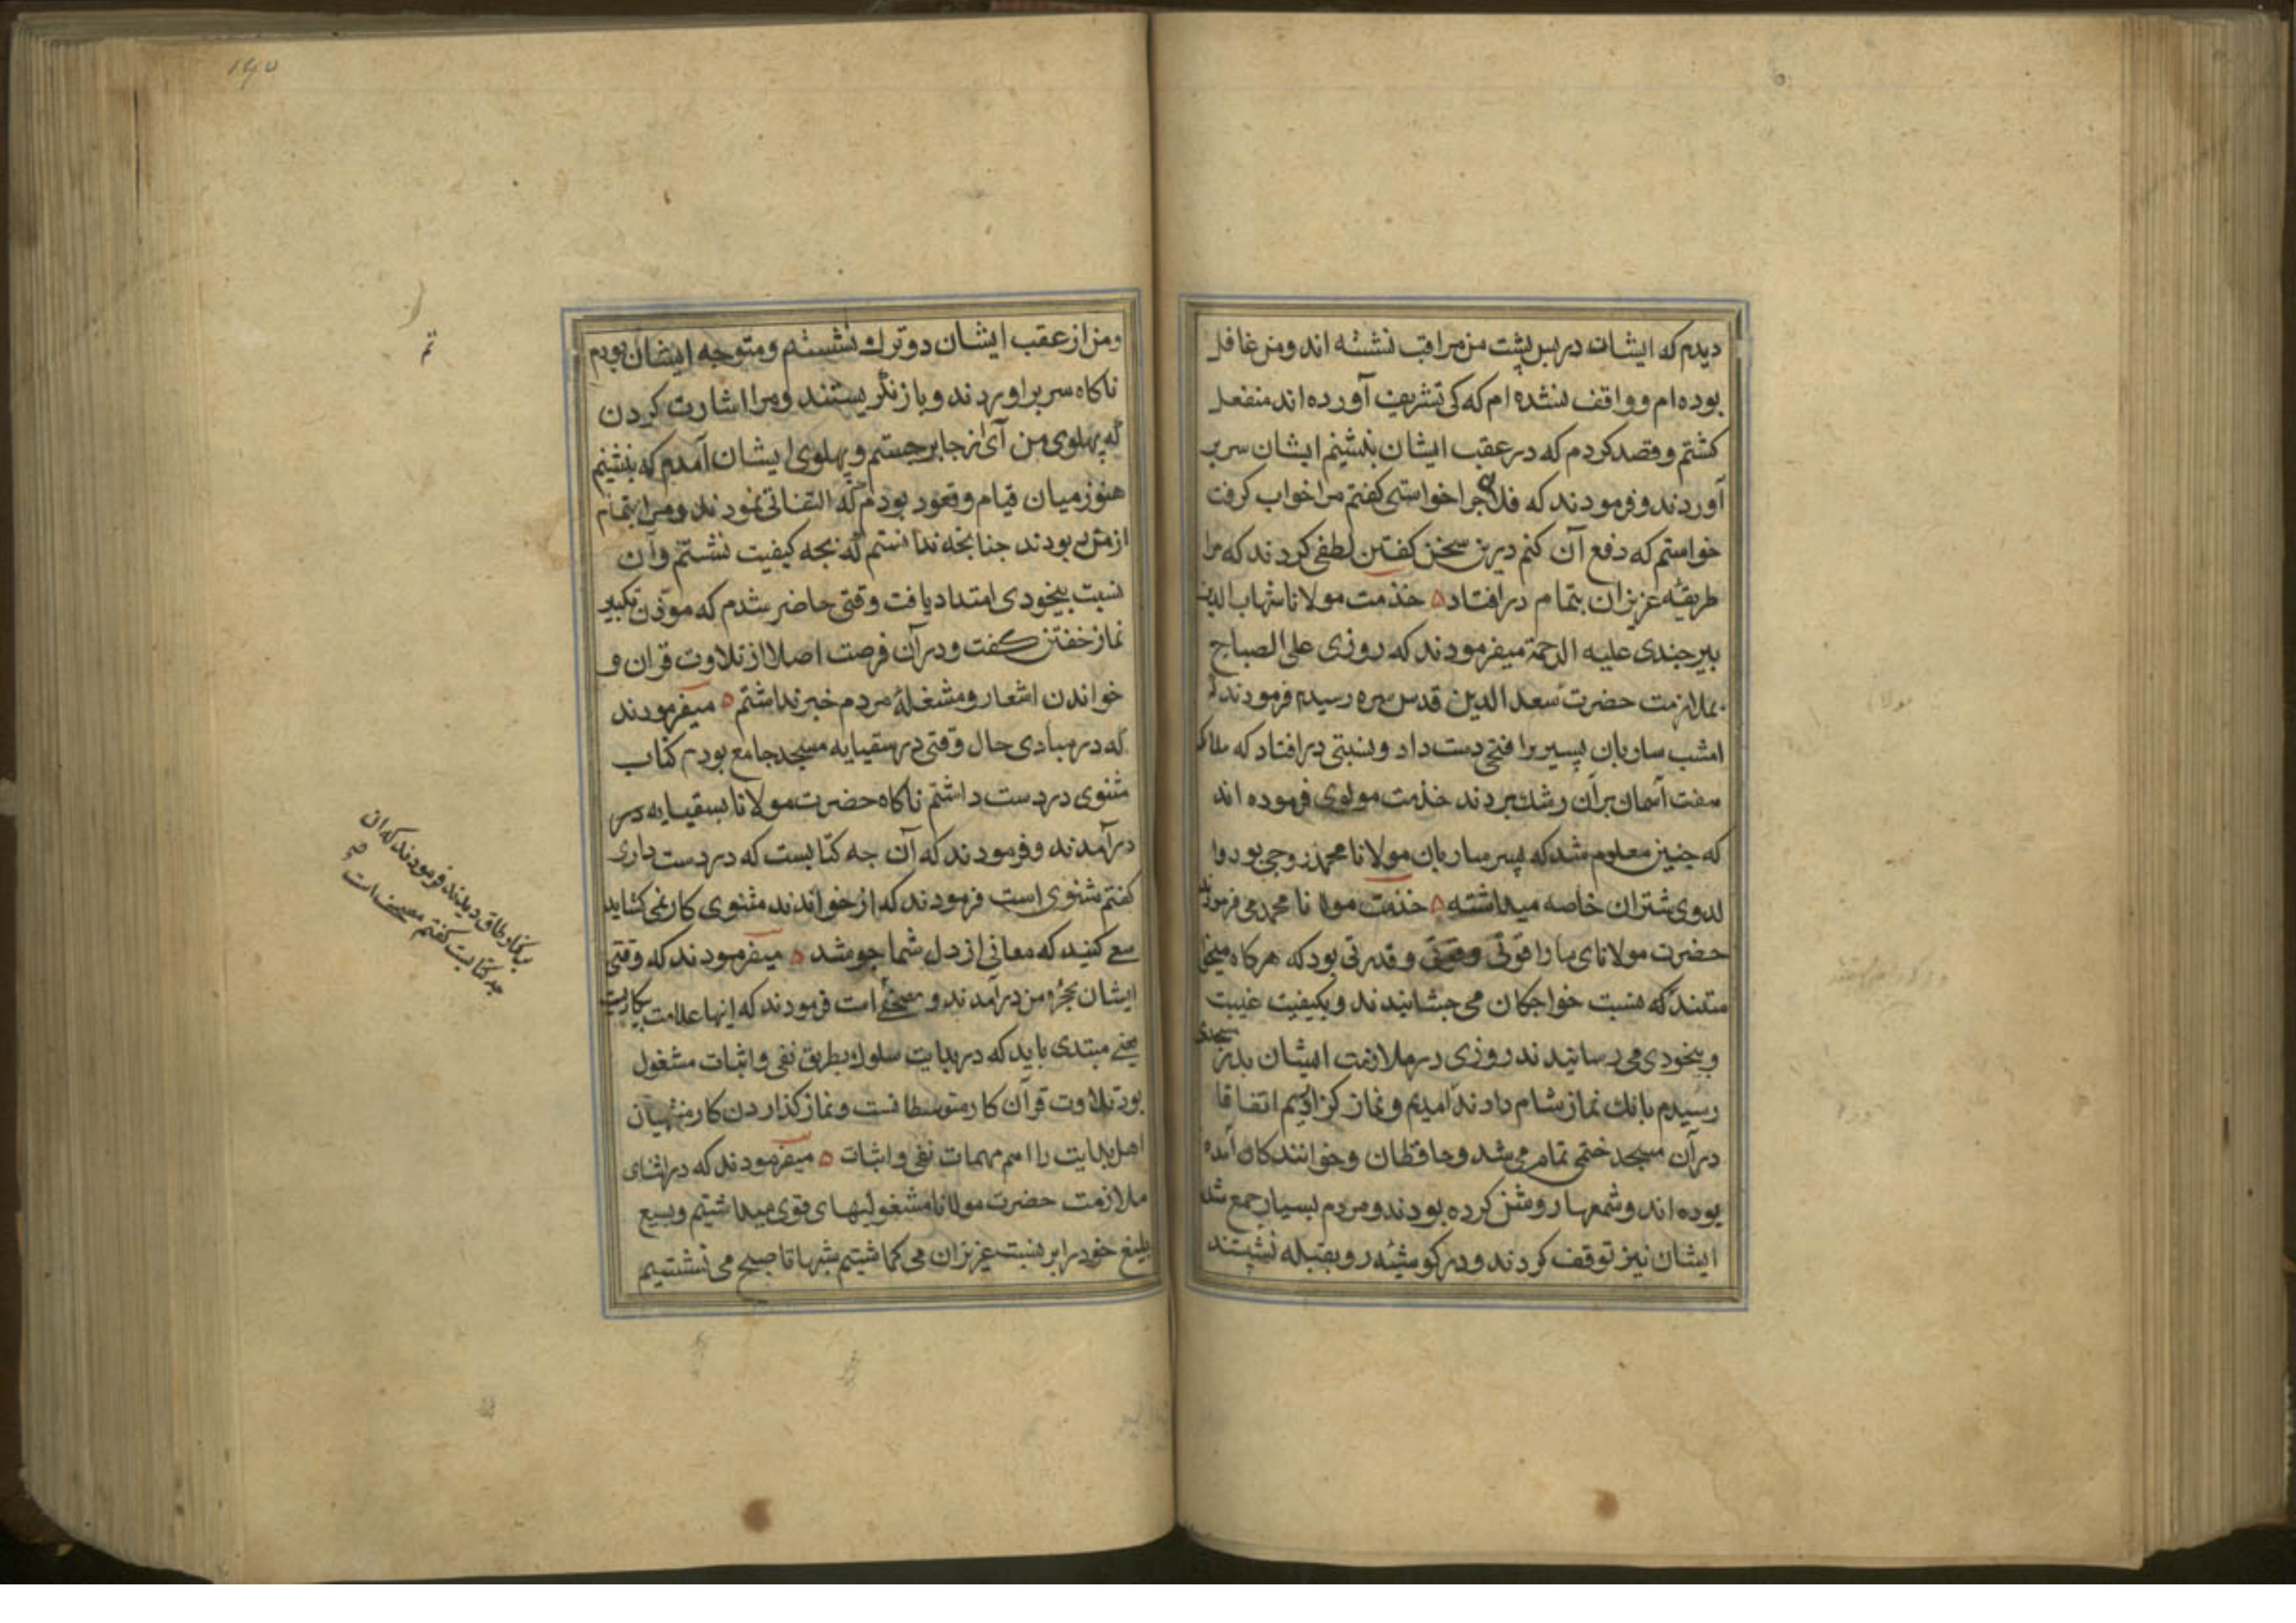 دیدم که ایشان در پس پشت من مراقب نشسته اند و من غافل
بوده ام و واقف نشده ام که کی تشریف آورده اند منفعل
کشتم و قصد کردم که در عقب ایشان بنشینم ایشان سر بر
آوردند و فرمودند که فلانی جرا خواستی کفتم مرا خواب کرفت
خواستم که دفع آن کنم درین سخن کفتن لطفی کردند که مرا
طریقهٔ عزیزان بتمام در افتاد ه خذمت مولانا شهاب الدین
بیرجندی علیه الرحمة میفرمودند که روزی علی الصباح
بملازمت حضرت سعد الدین قدس سره رسیدم فرمودند که
امشب ساربان پسیر را فتحی دست داد و نسبتی در افتاد که ملائکه
هفت آسمان بر آن رشك بردند خذمت مولوی فرموده اند
که جنین معلوم شد که پسر ساربان مولانا محمد روجی بود و ا
لد وی شتران خاصه میداشته ه خذمت مولانا محمد می فرمودند
حضرت مولانای ما را قوتی وقدرتی بود که هرکاه میخوا
ستند که نسبت خواجکان می جشانیدند و بکیفیت غیبت
و بیخودی می رسانیدند روزی در ملازمت ایشان بدر مسجدی
رسیدم بانك نماز شام دادند آمدیم و نماز کزاردیم اتفاقا
در آن مسجد ختمی تمام می شد و حافظان و خوانندکان آمده
بوده اند و شمعها روشن کرده بودند و مردم بسیار جمع شد
ایشان نیز توقف کردند و در کوشهٔ رو بقبله نشستند
۱۶۵
و من از عقب ایشان دوترك نشستم و متوجه ایشان بودم
ناکاه سر بر اوردند و باز نکریستند و مرا اشارت کردن
که پهلوی من آی از جا برجستم و پهلوی ایشان آمدم که بنشینم
هنوز میان قیام و قعود بودم که التفاتی نمودند و مرا بتمام
از من بربودند جنانجه ندانستم که بجه کیفیت نشستم و آن
نسبت بیخودی امتداد یافت وقتی حاضر شدم که موذن تکبیر
نماز خفتن کفت و در آن فرصت اصلا از تلاوت قران و
خواندن اشعار و مشغلهٔ مردم خبر نداشتم ه میفرمودند
که در مبادی حال وقتی در سقیایه مسجد جامع بودم کتاب
مثنوی در دست داشتم ناکاه حضرت مولانا بسقیایه در
در آمدند و فرمودند که آن جه کتابست که در دست داری
کفتم مثنوی است فرمودند که از خواندن مثنوی کار نمی کشاید
سعی کنید که معانی از دل شما جوشد ه میفرمودند که وقتی
ایشان بحجره من در آمدند و مصحفی است فرمودند که اینها علامت بیکاریست
یعنی مبتدی باید که در بدایت سلوك بطریق نفی و اثبات مشغول
بود تلاوت قرآن کار متوسطانست و نماز کذاردن کار منتهیان
اهل بدایت را اهم مهمات نفی و اثبات ه میفرمودند که در اثنای
ملازمت حضرت مولانا مشغولیهای قوی میداشتیم و بسیع
بلیغ خود را بر نسبت عزیزان می کماشتیم شبها تا صبح می نشستیم
بکنار طاق دیدند فرمودند که ان
جه کتابست کفتم مصحف است